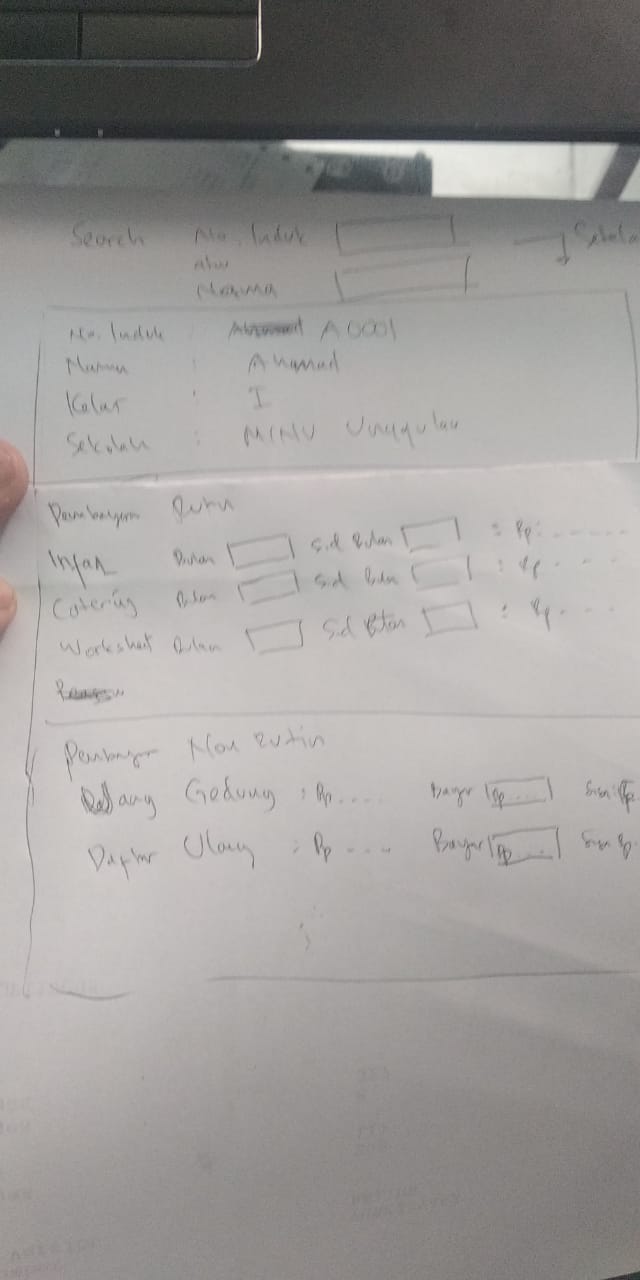 Search No. Induk
atau
Nama
No. Induk : A0001
Nama : Ahmad
Kelas : I
Sekolah : MINU Unggulan
Pembayaran Rutin
Infaq Bulan s.d Bulan : Rp. . . . . . .
Catering Bulan s.d Bulan : Rp. . . .
Worksheet Bulan s.d Bulan : Rp. . . .
Pembayar Non Rutin
Gedung : Rp. . . . . Bayar Rp. . . . Sisa : Rp.
Daftar Ulang : Rp . . . . Bayar Rp . . . Sisa Rp.